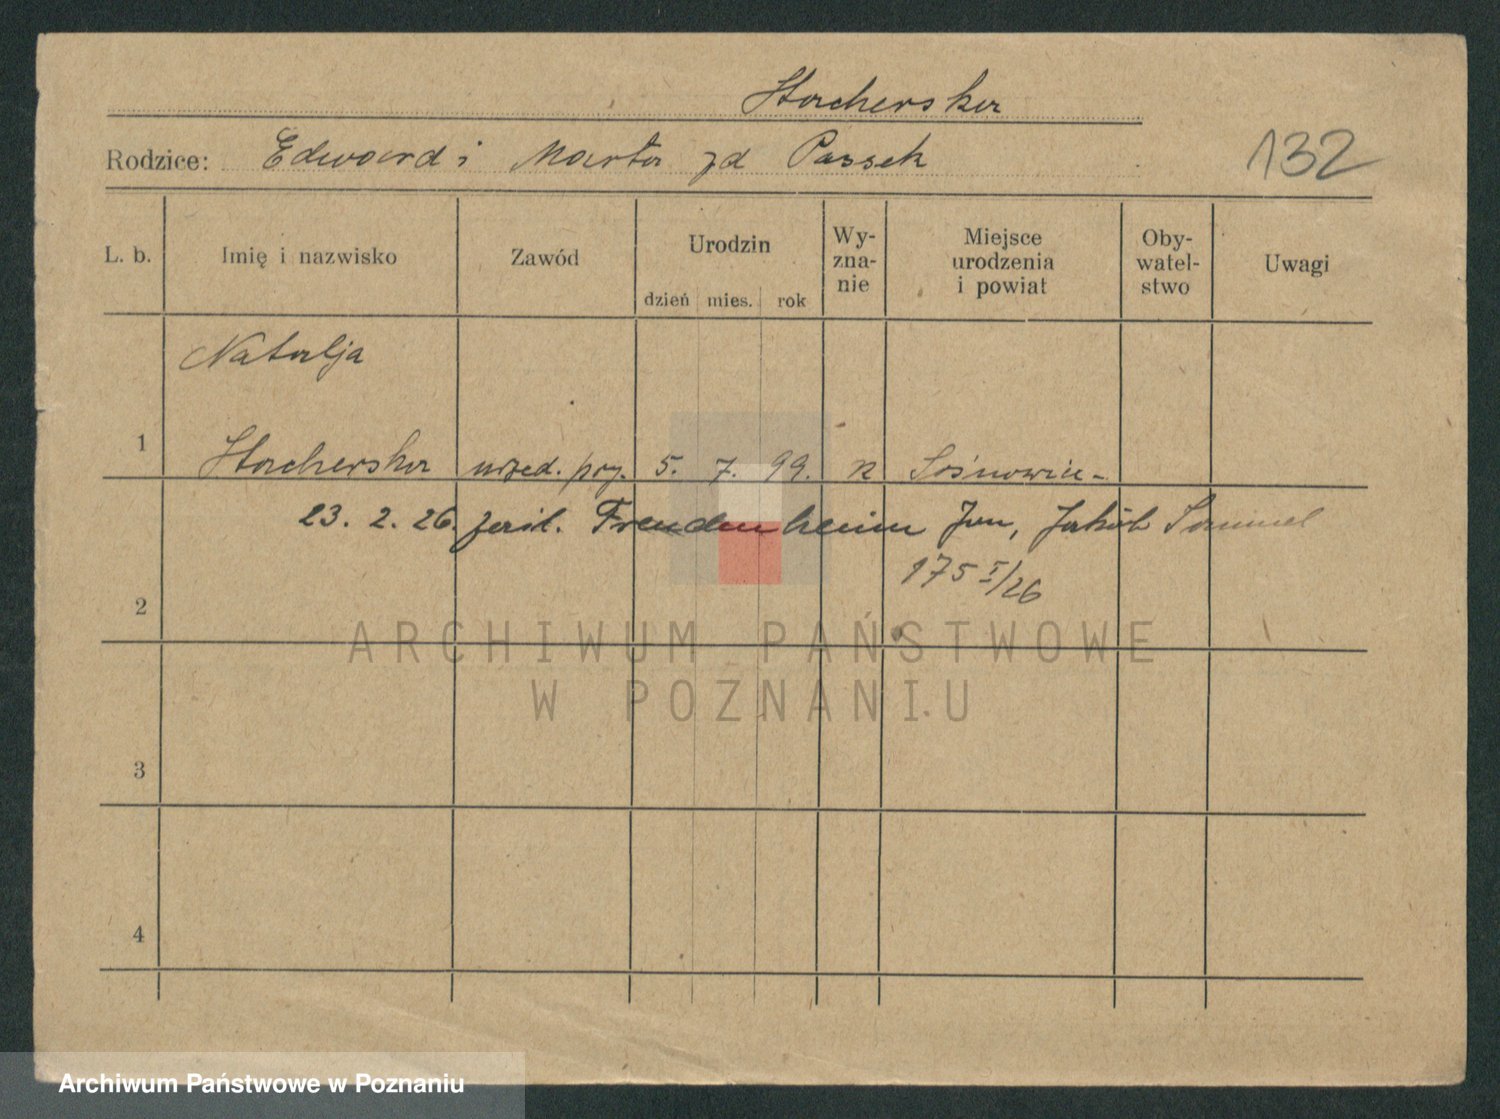 Stocherska
Rodzice: Edward i Marta zd Passek
132
L. b. Imię i nazwisko Zawód Urodzin dzień mies. rok Wy-zna-nie Miejsce urodzenia i powiat Oby-watel-stwo Uwagi
Natalja
1 Stocherska urzęd. pry. 5. 7. 99. k Sosnowice
23. 2. 26. Freudenheim Jan, Jakób Samuel
175 I/26
2
ARCHIWUM PAŃSTWOWE
W POZNANIU
3
4
Archiwum Państwowe w Poznaniu